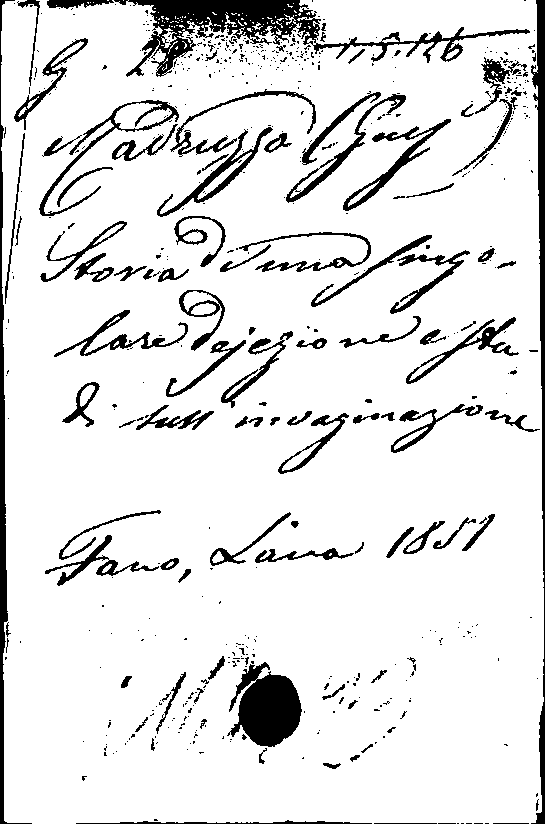 G. 28 1,5.126
Madruzzo (Giu)
Storia d'una singo-
lare dejezione e stu-
di sull'invaginazione
Fano, Lana 1851